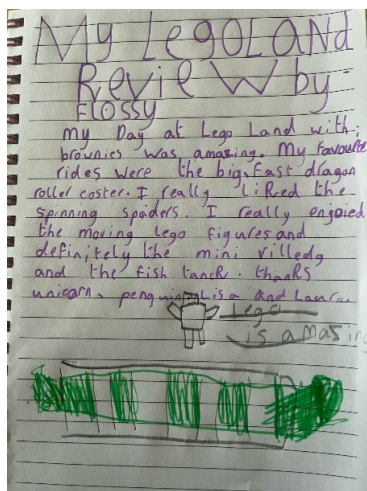 My LegoLAND
RevieW by
FLOSSY
My Day at Lego Land with
brownies was amazing. My favourite
rides were the big, fast dragon
roller coster. I really liked the
spinning spiders. I really engoied
the moving lego figures and
definitely the mini villedg
and the fish tanck. thanks
unicorn, penguin, Lisa and Laura.
Lego
is amasin